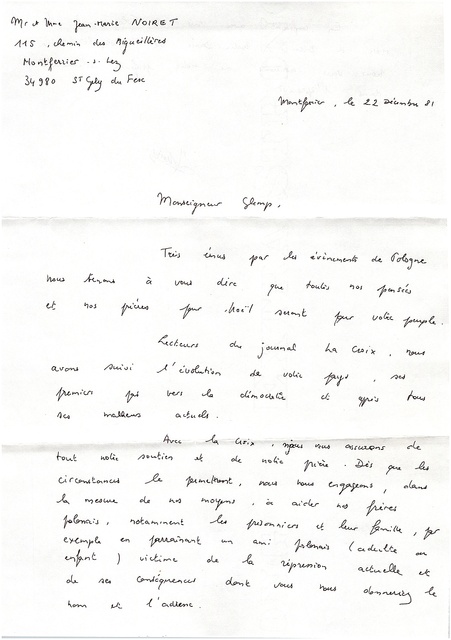 Mr et Mme Jean-Marie NOIRET
115, chemin des Aigueillères
Montferrier s. Lez
34980 St Gely du Fesc
Montferrier, le 22 Décembre 81
Monseigneur Glemp,
Très émus par les événements de Pologne
nous tenons à vous dire que toutes nos pensées
et nos prières pour Noël seront pour votre peuple.
Lecteurs du journal La Croix, nous
avons suivi l'évolution de votre pays, ses
premiers pas vers la démocratie et après tous
ses malheurs actuels.
Avec la Croix, nous vous assurons de
tout notre soutien et de notre prière. Dès que les
circonstances le permettront, nous nous engageons, dans
la mesure de nos moyens, à aider nos frères
polonais, notamment les prisonniers et leur famille, par
exemple en parrainant un ami polonais (adulte ou
enfant) victime de la répression actuelle et
de ses conséquences dont vous nous donneriez le
nom et l'adresse.